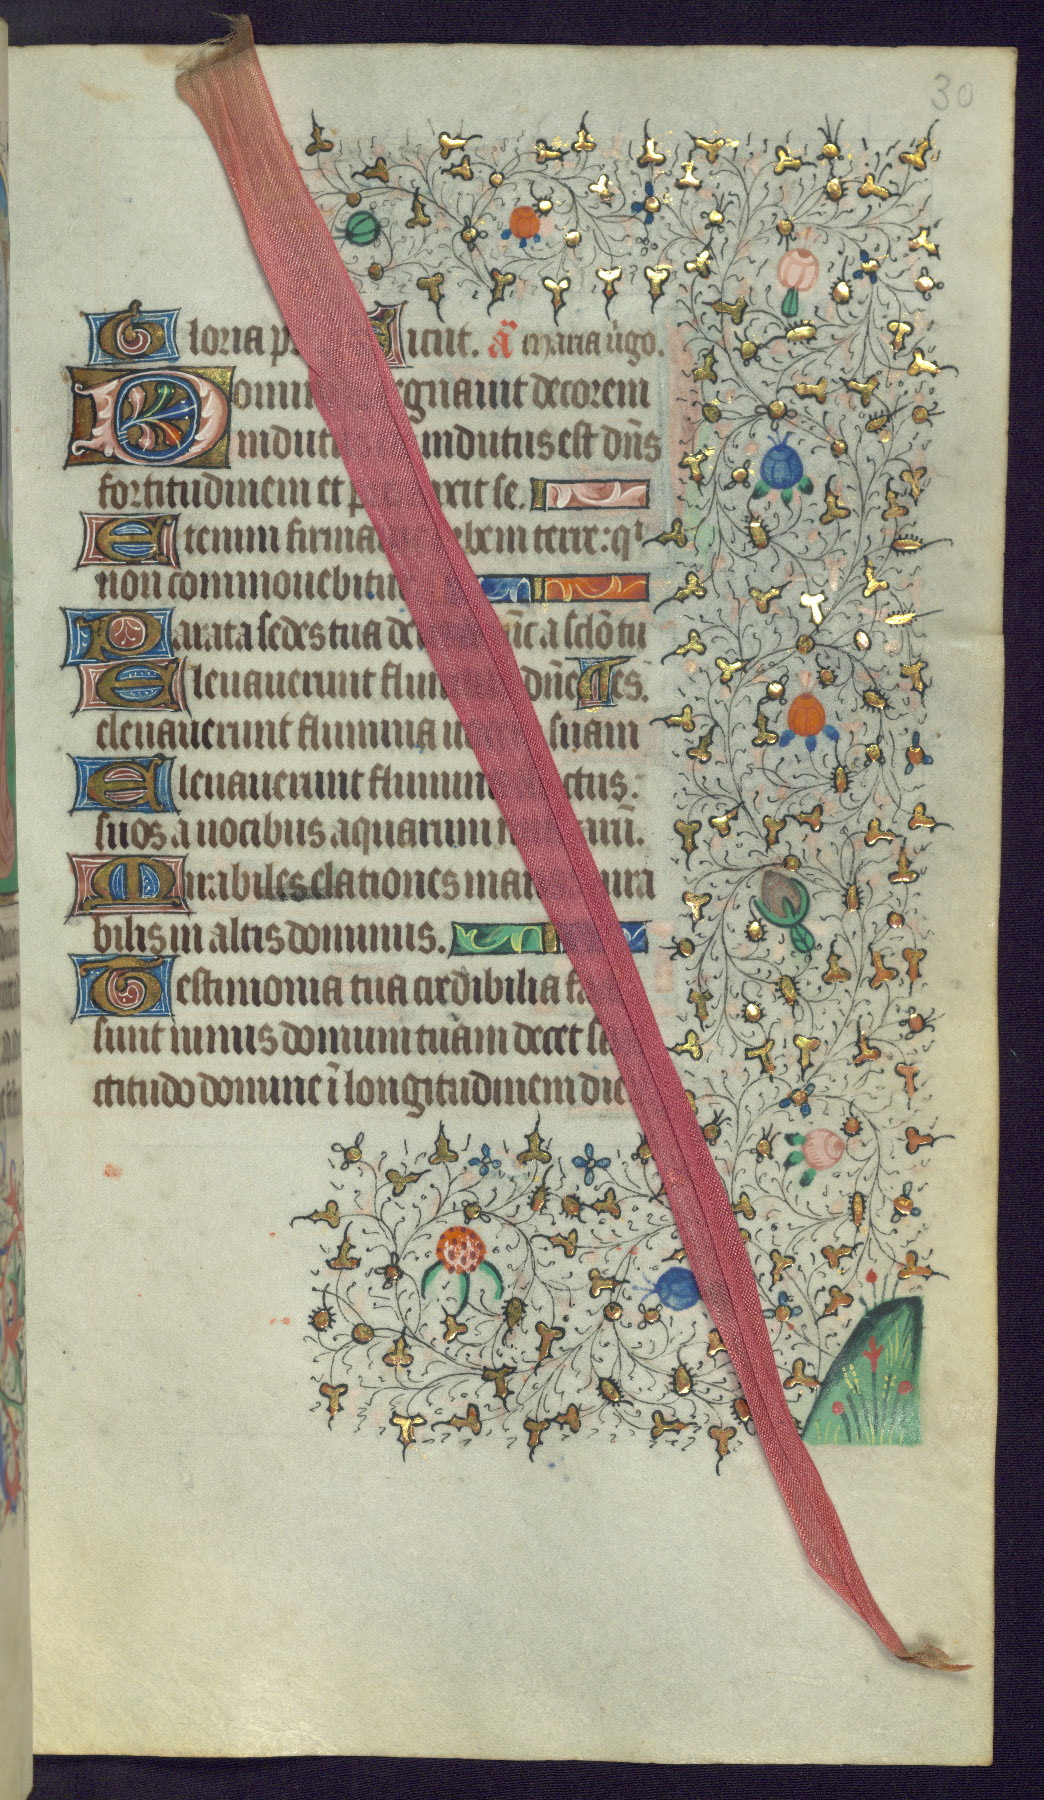 30
Gloria p icut. añ maria ũgo.
Domin egnauit decorem
indutu indutus est dñs
fortitudinem et p nxit se.
Etenim firma bem terre: q
non commouebitu
Parata sedes tua de ñc a sclõ tu
Eleuauerunt flum dñe es.
eleuauerunt flumina u suam
Eleuauerunt flumin ctus.
suos a uocibus aquarum m arũ.
Mirabiles elationes mar mira
bilis in altis dominus.
Testimonia tua credibilia fa
sunt nimis domum tuam decet sa
ctitudo domine ĩ longitudinem die